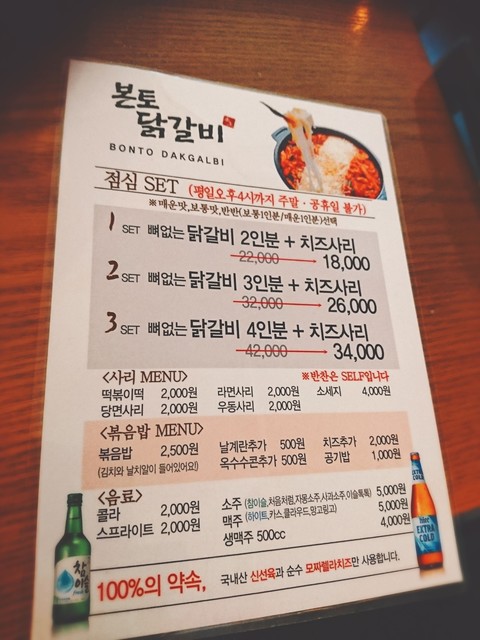 본토
닭갈비
BONTO DAKGALBI
점심 SET (평일오후4시까지 주말·공휴일 불가)
※매운맛,보통맛,반반(보통1인분/매운1인분)선택
1 SET 뼈없는 닭갈비 2인분 + 치즈사리
22,000 18,000
2 SET 뼈없는 닭갈비 3인분 + 치즈사리
32,000 26,000
3 SET 뼈없는 닭갈비 4인분 + 치즈사리
42,000 34,000
<사리 MENU> ※반찬은 SELF입니다
떡볶이떡 2,000원 라면사리 2,000원 소세지 4,000원
당면사리 2,000원 우동사리 2,000원
<볶음밥 MENU>
볶음밥 2,500원 날계란추가 500원 치즈추가 2,000원
(김치와 날치알이 들어있어요!) 옥수수콘추가 500원 공기밥 1,000원
<음료>
콜라 2,000원 소주 (참이슬,처음처럼,자몽소주,사과소주,이슬톡톡) 5,000원
스프라이트 2,000원 맥주 (하이트,카스,클라우드,망고링고) 5,000원
생맥주 500cc 4,000원
참이슬
EXTRA COLD
100%의 약속, 국내산 신선육과 순수 모짜렐라치즈만 사용합니다.